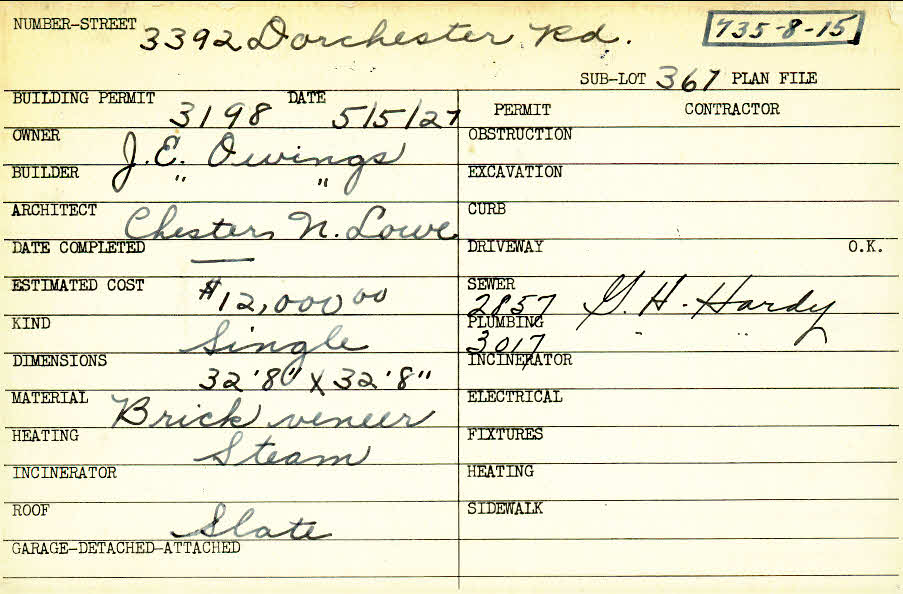 NUMBER-STREET 3392 Dorchester Rd. 735-8-15
SUB-LOT 367 PLAN FILE
BUILDING PERMIT 3198 DATE 5/5/27
PERMIT CONTRACTOR
OWNER J.E. Owings
OBSTRUCTION
BUILDER " "
EXCAVATION
ARCHITECT Chester N. Lowe
CURB
DATE COMPLETED —
DRIVEWAY O.K.
ESTIMATED COST $12,000 00
SEWER 2857 G. H. Hardy
KIND Single
PLUMBING 3017 " "
DIMENSIONS 32'8" X 32'8"
INCINERATOR
MATERIAL Brick veneer
ELECTRICAL
HEATING Steam
FIXTURES
INCINERATOR
HEATING
ROOF Slate
SIDEWALK
GARAGE-DETACHED-ATTACHED